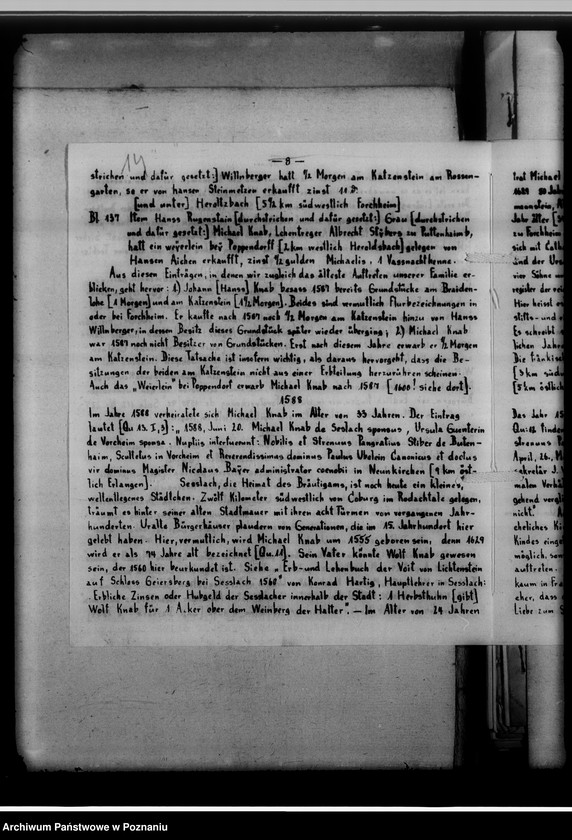 14
— 8 —
streichen und dafür gesetzt:] Willnberger hatt ½ Morgen am Katzenstein am Rossen-
garten, so er von hansen Steinmetzen erkaufft zinst 10 d.
[und unter] Heroltzbach [5½ km südwestlich Forchheim]
Bl 137 Item Hanss Rugenstain [durchstrichen und dafür gesetzt:] Grau [durchstrichen
und dafür gesetzt:] Michael Knab, Lehentreger Albrecht Styberg zu Puttenhaimb,
hatt ein weyerlein bey Poppendorff [2 km westlich Heroldsbach] gelegen von
Hansen Aichen erkaufft, zinst ½ gulden Michaelis. 1 Vassnachthenne.
Aus diesen Einträgen, in denen wir zugleich das älteste Auftreten unserer Familie er-
blicken, geht hervor: 1) Johann [Hanss] Knab besass 1587 bereits Grundstücke am Braiden-
lohe [1 Morgen] und am Katzenstein [1½ Morgen]. Beides sind vermutlich Flurbezeichnungen in
oder bei Forchheim. Er kaufte nach 1587 noch ½ Morgen am Katzenstein hinzu von Hanss
Willnberger, in dessen Besitz dieses Grundstück später wieder überging; 2) Michael Knab
war 1587 noch nicht Besitzer von Grundstücken. Erst nach diesem Jahre erwarb er ½ Morgen
am Katzenstein. Diese Tatsache ist insofern wichtig, als daraus hervorgeht, dass die Be-
sitzungen der beiden am Katzenstein nicht aus einer Erbteilung herzurühren scheinen.
Auch das „Weierlein" bei Poppendorf erwarb Michael Knab nach 1587 [1600! siehe dort].
1588
Im Jahre 1588 verheiratete sich Michael Knab im Alter von 33 Jahren. Der Eintrag
lautet [Qu 13. I, 3]: „1588, Juni 20. Michael Knab de Seslach sponsus, Ursula Guenterin
de Vorcheim sponsa. Nuptiis interfuerunt: Nobilis et Strenuus Pangratius Stiber de Buten-
haim, Scultetus in Vorcheim et Reverendissimus dominus Paulus Ubelein Canonicus et doctus
vir dominus Magister Nicolaus Bayer administrator coenobii in Neunkirchen [9 km öst-
lich Erlangen]. Sesslach, die Heimat des Bräutigams, ist noch heute ein kleines,
weltentlegenes Städtchen. Zwölf Kilometer südwestlich von Coburg im Rodachtale gelegen,
träumt es hinter seiner alten Stadtmauer mit ihren acht Türmen von vergangenen Jahr-
hunderten. Uralte Bürgerhäuser plaudern von Generationen, die im 15. Jahrhundert hier
gelebt haben. Hier, vermutlich, wird Michael Knab um 1555 geboren sein, denn 1629
wird er als 74 Jahre alt bezeichnet [Qu. 11]. Sein Vater könnte Wolf Knab gewesen
sein, der 1560 hier beurkundet ist. Siehe „Erb- und Lehenbuch der Voit von Lichtenstein
auf Schloss Geiersberg bei Sesslach 1560" von Konrad Hartig, Hauptlehrer in Sesslach:
„Erbliche Zinsen oder Hubgeld der Sesslacher innerhalb der Stadt: 1 Herbsthuhn [gibt]
Wolf Knab für 1 Acker ober dem Weinberg der Halter". — Im Alter von 24 Jahren
Archiwum Państwowe w Poznaniu